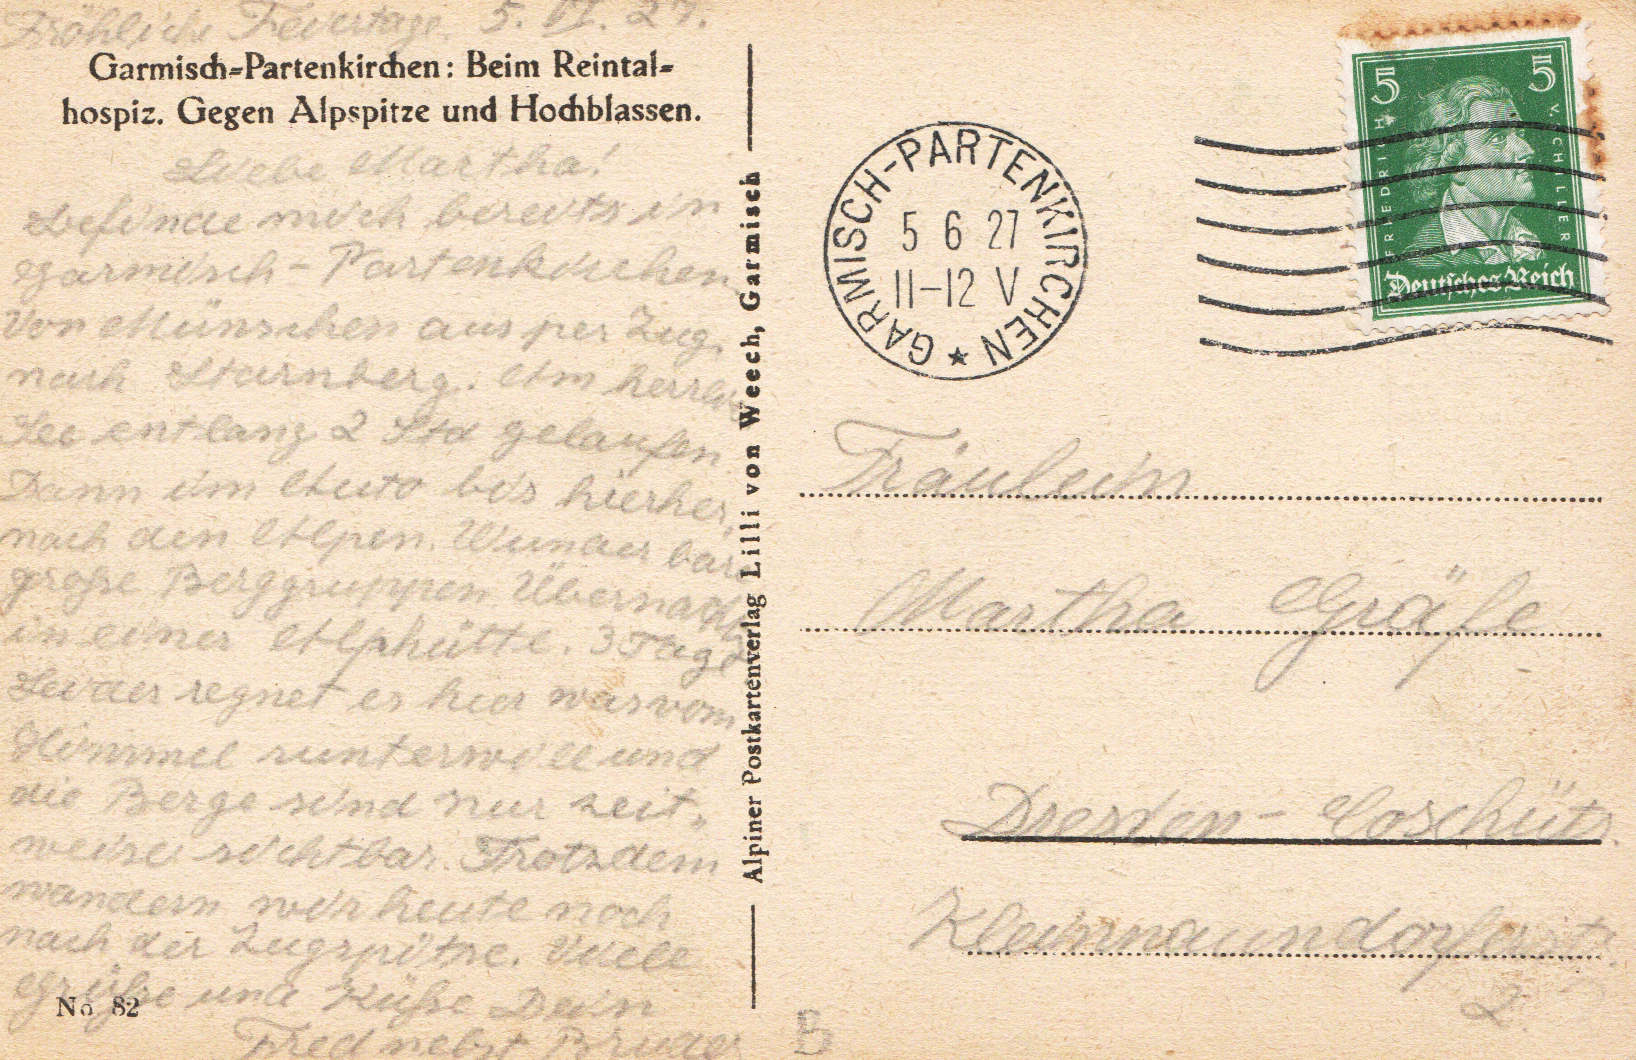 Fröhliche Feiertage. 5. VI. 27.
Garmisch-Partenkirchen: Beim Reintal-
hospiz. Gegen Alpspitze und Hochblassen.
Liebe Martha!
Befinde mich bereits in
Garmisch-Partenkirchen
Von München aus per Zug
nach Starnberg. Am herrl
See entlang 2 Std gelaufen.
Dann im Auto bis hierher,
nach den Alpen. Wunderbar
große Berggruppen Übernacht
in einer Alphütte. 3 Tage
Leider regnet es hier was vom
Himmel runterwill und
die Berge sind nur zeit-
weise sichtbar. Trotzdem
wandern wir heute noch
nach der Zugspitze. Viele
Grüße und Küße Dein
Fred nebst Bruder
No 82
Alpiner Postkartenverlag Lilli von Weech, Garmisch
GARMISCH-PARTENKIRCHEN
5 6 27
11-12 V
5 5
FRIEDRICH V. SCHILLER
Deutsches Reich
Fräulein
Martha Gräfe
Dresden-Coschütz
Kleinnaundorferstr.
2
B